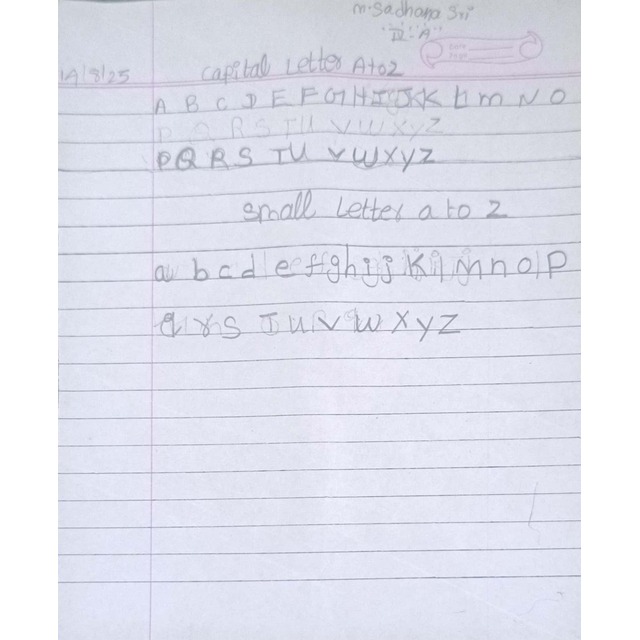 m. Sadhana Sri
III - A
14/8/25
Capital Letter A to Z
A B C D E F G H I J K L m N O
P Q R S T U V W X Y Z
P Q R S T U V W X Y Z
Small Letter a to z
a b c d e f g h i j k l m n o p
q r s T u v w x y z